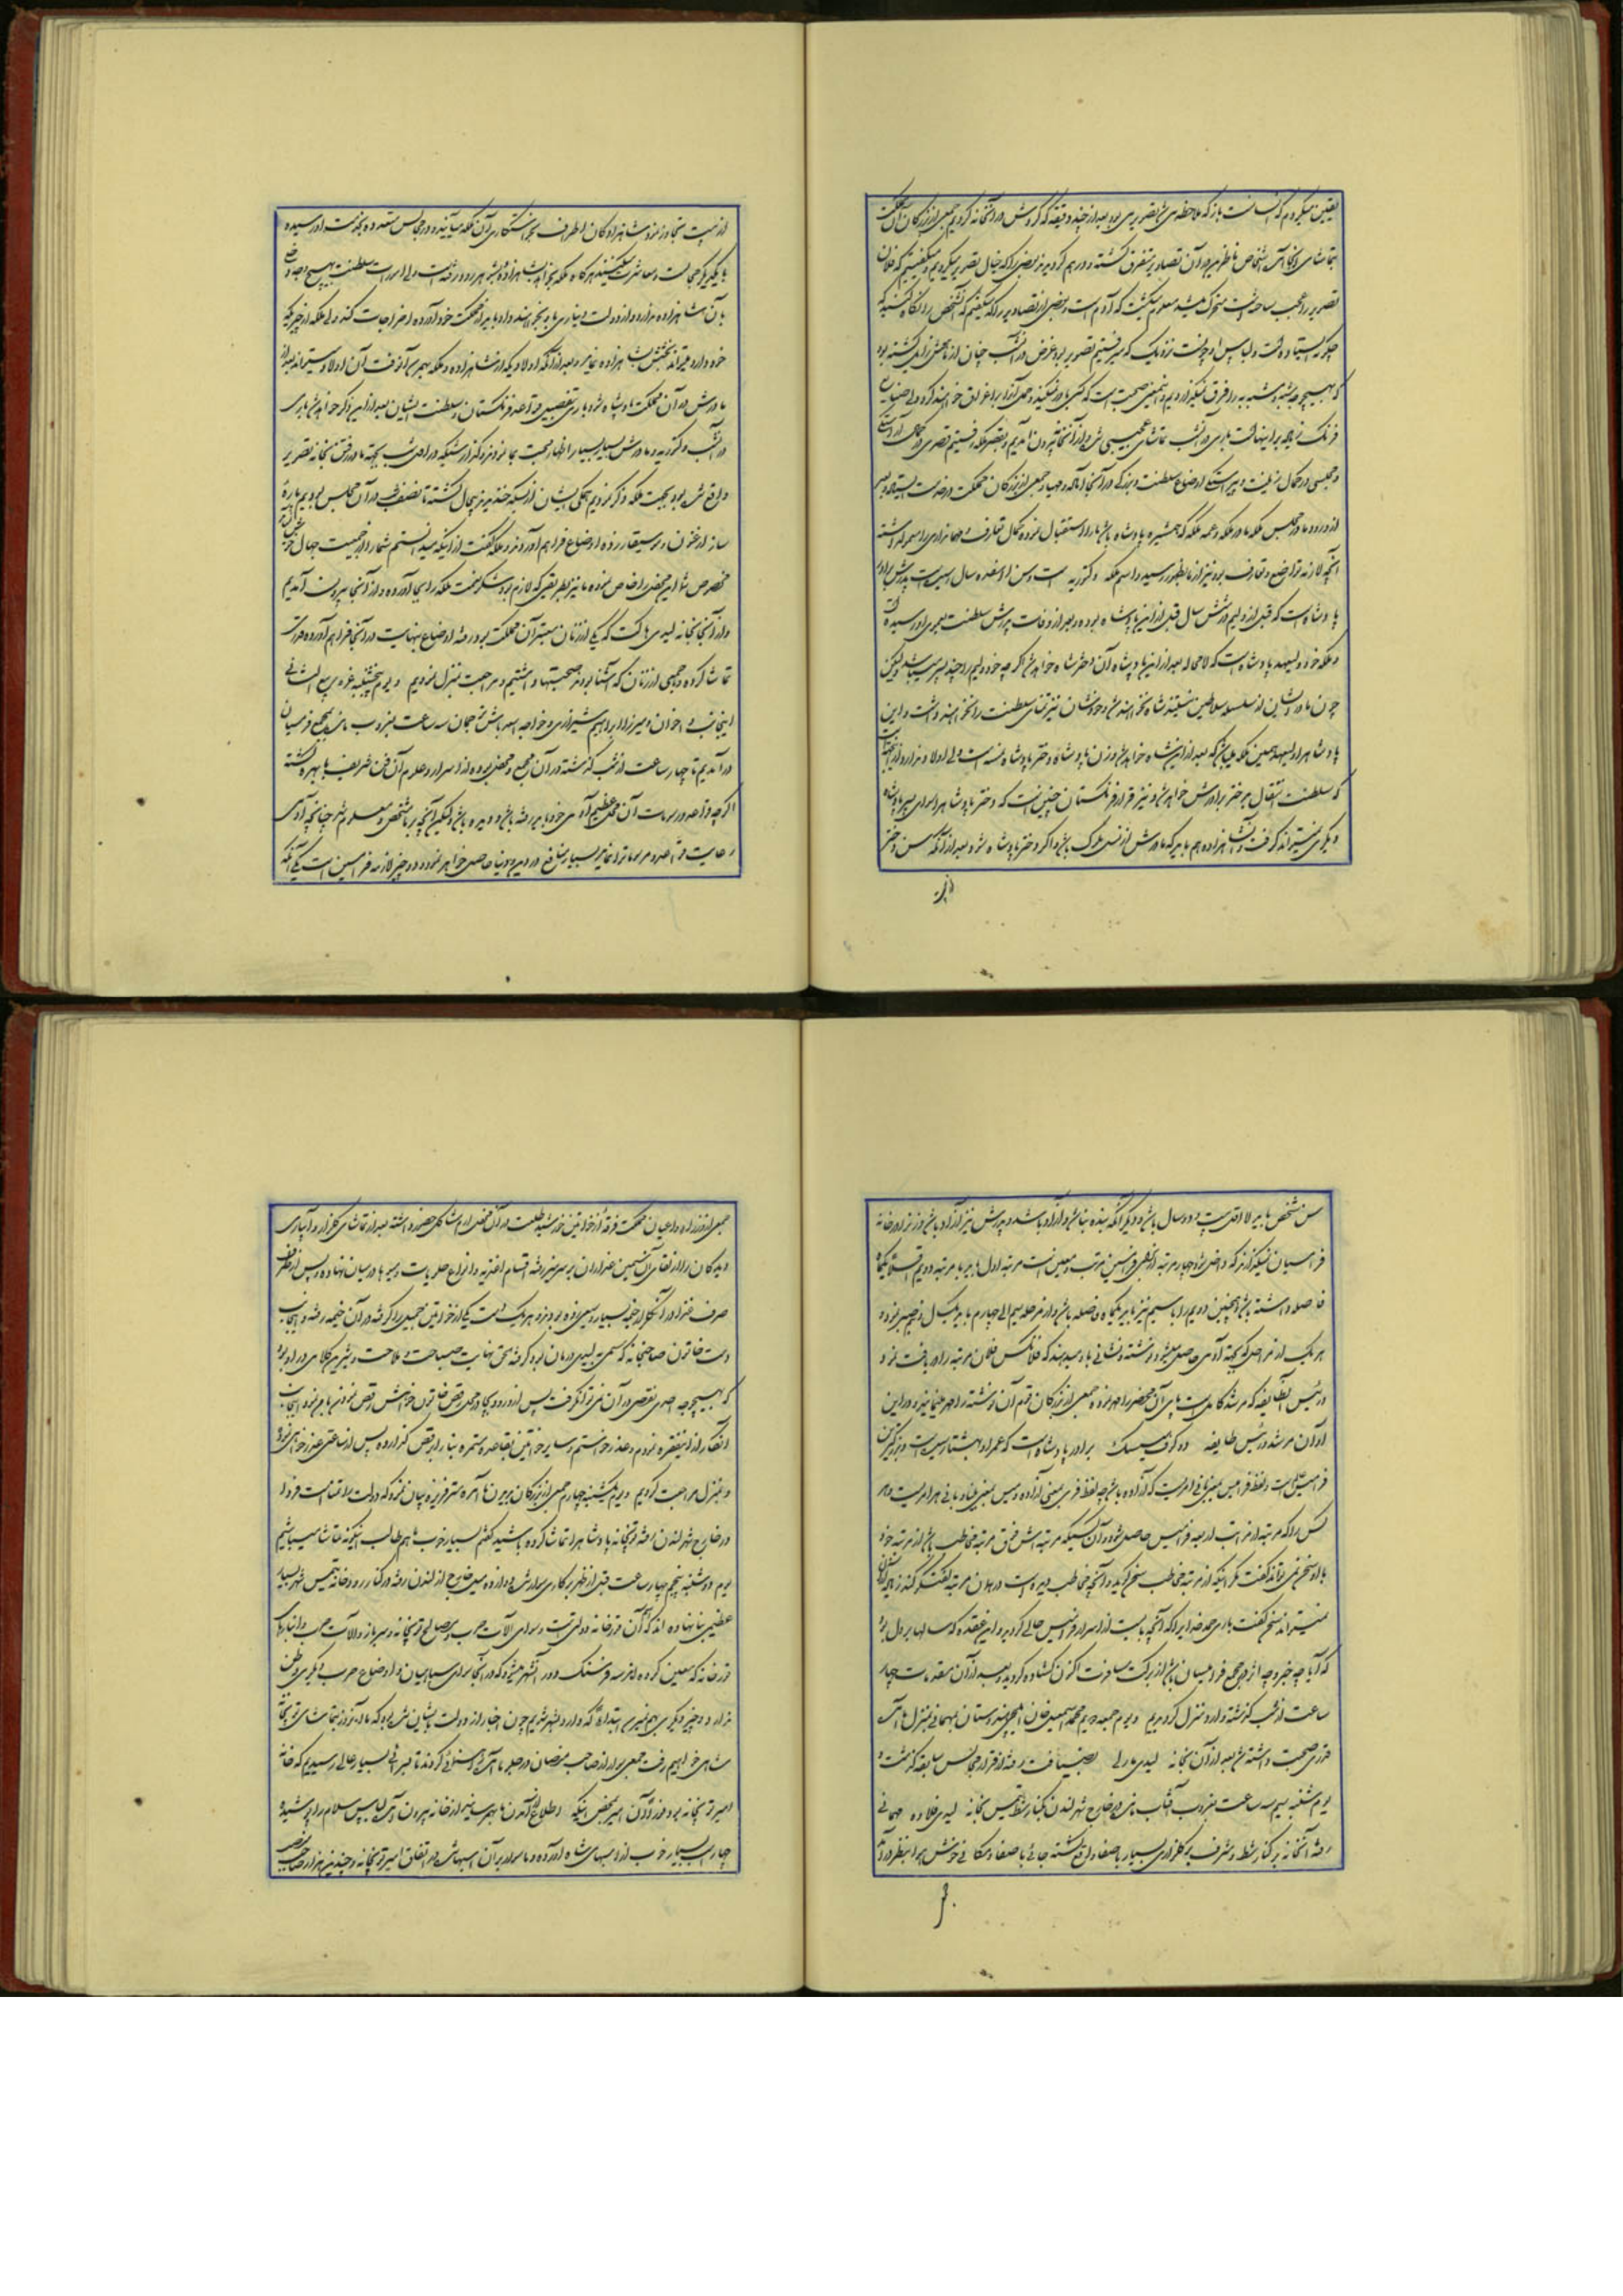 یقین میکردم که انسانست باز که ملاحظه می شد تصویری بود بعد از چند دقیقه که گردش در آنخانه کردیم جمعی از بزرکان آن مملکت
بتماشای آنجا آمده اشخاص ناظرین در آن تصاویر متفرق گشته و درهم بعضی را که خیال تصویر میکردیم و میگفتیم که فلان
تصویر را عجب ساخته است متحرک میشد معلوم میگشت که آدم است و بعضی از تصاویر را که میگفتم که آنشخص را نگاه کنید که
چگونه ایستاده است و لباس او چونست نزدیک که میرفتیم تصویر بود غرض در آنشب چنان از ما بعضی زایل گشته بود
که بهیچوجه مشبه و مشبه به را فرق نمیکردیم و اینمعنی صحبت است که کسی باور نمیکند و حمل آنرا بر اغراق خواهند کرد ولی
فرنک زیاده بر اینهاست باری در آنشب تماشای عجیبی شد و از آنخانه بیرون آمدیم و بقصر ملکه رفتیم قصری در
و مجلسی در کمال زینت و اوضاع سلطنت و بزرکی در آنجا آماده و مهیا و جمعی از بزرکان مملکت در خدمت ایستاده بعد
از ورود ما در مجلس ملکه مادر ملکه و عمه ملکه که همشیره پادشاه باشد ما را استقبال نموده کمال تعارف و مهمانداری را معمول داشته
آنچه لازمه تواضع و تعارف بود نیز از ما بظهور رسید و اسم ملکه وکتوریه است و سن او هفده سال است پدرش برادر
پادشاه است که قبل از ولیم شش سال قبل از این پادشاه بوده و بعد از وفات پدرش سلطنت بعموی او رسیده
و ملکه خود ولیعهد پادشاه است که لامحاله بعد از این پادشاه آن دختر شاه خواهد شد اگر چه خود ولیم را چند پسر میباشد ولیکن
چون مادر ایشان از سلسله سلاطین نیستند شاه نخواهند شد و خودشان نیز تمنای سلطنت را نخواهند داشت و این
پادشاه را ولیعهد همین ملکه میباشد که بعد از این شاه خواهد شد و زن پادشاه دختر پادشاه نمسه است ولی اولاد ندارد
که سلطنت انتقال بدختر برادرش خواهد شد و نیز قرار فرنگستان چنین است که دختر پادشاه را سوای پسر پادشاه
دیگری نمیتواند گرفت و آنشاهزاده هم باید که مادرش از نسل ملوک باشد و اگر دختر پادشاه شود بعد از آنکه سن دختر
از بیست تجاوز نمود شاهزادگان از اطراف بخواستگاری آن ملکه میآیند و در مجالس متعدده بخدمت او رسیده
با یکدیگر مجالست و معاشرت میکنند هر گاه ملکه بخواهد بشاهزاده شوهر رود رفته است ولی امورات سلطنت بهیچوجه
بآن شاهزاده ندارد و از دولت دیناری باو نخواهند داد و باید از مملکت خود آورده اخراجات کند ولی ملکه از خیر که
خود دارد میتواند بخشش بشاهزاده نماید و بعد از آنکه اولاد یکه از شاهزاده و ملکه بهمرسد آنوقت آن اولاد میتواند بعد از
مادرش در آن مملکت پادشاه شود باری تفصیل قواعد فرنگستان و سلطنت ایشان بعد از این ذکر خواهد شد باری
در آنشب وکتوریه و مادرش بسیار بسیار اظهار محبت بما نمودند و گذارشیکه در اول شب بجهة ما در رفتن بنگارخانه تصویر
واقع شده بود بجهت ملکه ذکر نمودیم همگی ایشان از مسئله خنده بیحال گشته تا نصف شب در آن مجلس بودیم پارهٔ
ساز ارغنون و موسیقار زده اوضاع فراهم آوردند و ملکه گفت از اینکه میدانستم شما را از جمعیت
مخصوص شما این محضر را خاص نموده ما نیز بطریقی که لازم بود شکر نعمت ملکه را بجا آورده و از آنجا بیرون آمدیم
و از آنجا بخانه لیدی که یکی از زنان معتبر آن مملکت بود رفته اوضاع بینهایت در آنجا فراهم آورده قدری
تماشا کرده و جمعی از زنان که آشنا بودند صحبتها داشتیم و مراجعت بمنزل نمودیم و یوم پنجشنبه غره ربیع الثانی
اینجانب و اخوان و میرزا ابراهیم شیرازی و خواجه اسعد باش ترجمان سه ساعت بغروب مانده بمجمع فرمسیان
در آمدیم تا چهار ساعت از شب گذشته در آن مجمع و محفل بوده از اسرار و علوم آن فن شریف با بهره گشته
اگر چه قواعد و رسومات آن محفل عظیم آدمی خود باید رفته باشد و دیده باشد ولیکن آنچه بر ما مشخص و معلوم شد چنانچه آدمی
رعایت قواعد و مرسوم ما را نماید بسیار منافع در دین و دنیا حاصل خواهد نمود و دو چیز لازمه فرامیسن است یکی آنکه
سن شخص باید لااقل بیست و دو سال باشد و دیگر آنکه بنده نباشد و آزاد باشد و پدرش نیز آزاد باشد و زنرا در خانه
فرامسیان نمیگذارند که داخل شود چهار مرتبه از فرامیسن مرتب و معین است مرتبه اول باید با مرتبه دویم اقلا یکماه
فاصله داشته باشد و همچنین دویم را با سیم نیز باید یکماه فاصله باشد و از مرحله سیم الی چهارم باید یک سال توقف نمود و
هر یک از مراحل که بجهة آدمی حاصل میشود نوشته و نشانی باو میدهند که فلانکس فلان مرتبه را دریافت نمود
و رئیس آنطایفه که مرشد کامل است پای آن محضر را مهر نموده جمعی از بزرکان قوم آن نوشته را مهر مینمایند و در این
آوان مرشد و رئیس طایفه دوک آف سسیک برادر پادشاه است که عمر او بهشتاد رسیده است و بزرگترین
فرامیسن است و لفظ فرامیس یعنی بانی امریست که آزاده باشد چه لفظ فری بمعنی آزاده و میس بمعنی بنا و بانی هر امریست و هر
کس را که مرتبه از مراتب اربعه فرامیس حاصل شود و آن کسیکه مرتبه اش فوق مرتبه مخاطب باشد از مرتبه خود
با او سخن نمی تواند گفت مگر اینکه از مرتبه مخاطب سخن گوید و آنچه مخاطب دیده است در همان مرتبه گفتگو کند زیاده از آن
نمیتواند سخن گفت باری حمد خدایرا که آنچه بایست از اسرار فرامیس حالی گردید و این عقده که سالها بر دل بود
که آیا چه خبر و چه اثر در مجمع فرامسیان باشد از برکت مسافرت اکنون گشاده گردید و بعد از آن مقدمات چهار
ساعت از شب گذشته وارد منزل گردیدیم و یوم جمعه دویم محمد اسمعیل خان ایلچی هندوستان بمهمانی منزل ما آمده
قدری صحبت داشته شد بعد از آن بخانه لیدی مارلی بضیافت رفته از قرار مجالس سابقه گذشت و
یوم شنبه سیم سه ساعت بغروب آفتاب مانده در خارج شهر لندن در کنار شط تمیس بخانه لیدی فلاده مهمانی
رفته آنخانه بر کنار شط و مشرف بر گلزاری بسیار باصفا واقع گشته جائی باصفا و مکانی خوش هوا بنظر در آمد
جمعی از وزراء و اعیان مملکت و فرقهٔ از خواتین خورشید طلعت در آن محفل ارم شاکل حضور داشته بعد از تماشای گلزار و آبیاری
دیدگان را از تماشای آن نسرین عذاران بر سر میز رفته اقسام اغذیه و انواع حلویات و میوه ها در میان نهاده و پس از
صرف غذا در آنگلزار خیمه بسیار وسیعی زده بودند هر یک دست یکی از خواتین جمیل را گرفته در آن خیمه رفته و اینجانب
دست خاتون صاحبخانه که مسمی بلیدی بود گرفته بحق نهایت صباحت و ملاحت و شیرین کلامی در او بود
که بهیچوجه احدی نقصی در آن نمی توانگرفت پس از ورود بجای و محل رقص خاتون خواهش رقص نمودن با من نمود اینجانب
انکار از اینفقره نمودم و عذر خواستم و سایر خواتین بقاعده مستمره بنا بر رقص گذارده پس از ساعتی عذر خواهی نمود
و بمنزل مراجعت کردیم و یوم یکشنبه چهارم جمعی از بزرکان بدیدن ما آمده مستر فریزر بیان نمود که دولت را تمنا است فردا
در خارج شهر لندن رفته توپخانه پادشاه را تماشا کرده باشید گفتم بسیار خوب ما هم طالب اینگونه تماشا میباشیم
یوم دوشنبه پنجم چهار ساعت قبل از ظهر بر کالسکه سوار شده دوازده میل خارج از لندن رفته در کنار رودخانه تمیس شهر بسیار
عظیمی بنا نهاده اند که آن قورخانه دولتی است و سوای آلات حرب و مصالح توپخانه و سرباز و آلات حرب و انبارهای
قورخانه که معین کرده اند سه فرسنک دور آنشهر میشود که در آنجا سوای سپاهیان و اوضاع حرب دیگری وطن
ندارد و چیز دیگری بهم نمیرسد ابتدا که وارد آنشهر شدیم چون اخبار از دولت بایشان شده بود که ما در آنروز بتماشای توپخانهٔ
شاهی خواهیم رفت جمعی سوار از صاحب منصبان در جلو ما آمده راهنمائی کردند تا بسرائی بسیار عالی رسیدیم که خانه
امیر توپخانه بود فوراً آن امیر بمحض اینکه اطلاع از آمدن ما بهمرسانید از خانه بیرون آمده لباس سلام را پوشیده
چهار اسب بسیار خوب از اسبهای شاه آورده و ما سوار بر آن اسبهای شده باتفاق امیر توپخانه و چندین هزار صاحب منصب